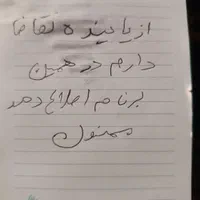 از یابنده تقاضا
دارم در همین
برنامه اطلاع دهد
ممنون